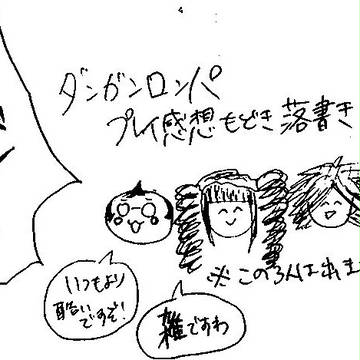 ダンガンロンパ
プレイ感想もどき落書き
※この3人は出ま
いつもより
酷いですぞ!
雑ですわ